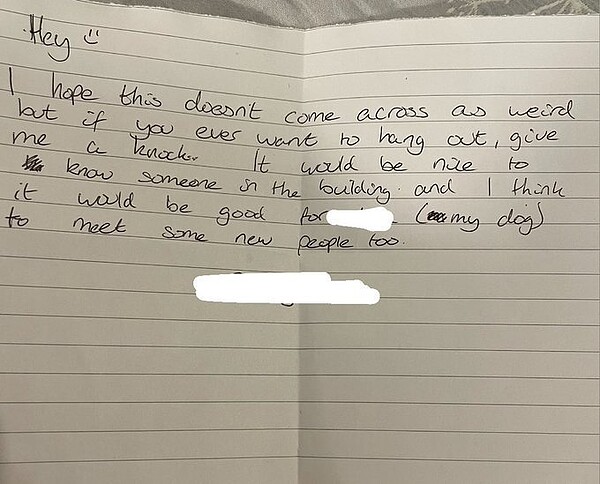 Hey :)
I hope this doesn't come across as weird
but if you ever want to hang out, give
me a knock. It would be nice to
know someone in the building. and I think
it would be good for (my dog)
to meet some new people too.